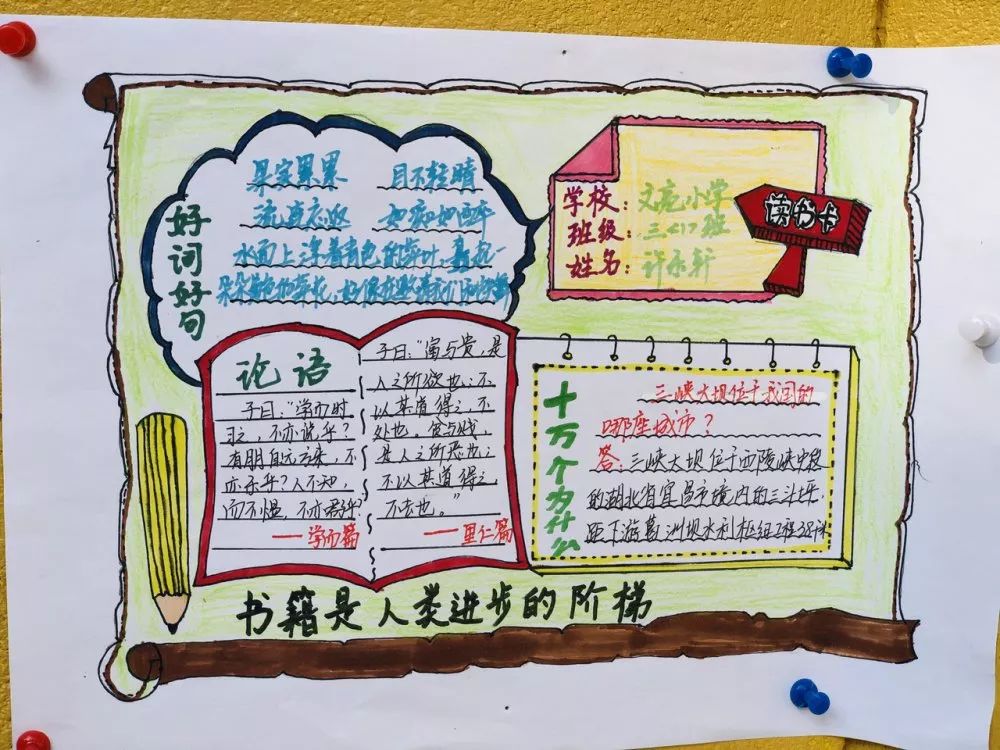 好词好句
果实累累 目不转睛
流连忘返 如痴如醉
水面上浮着青色的
学校：文庙小学
班级：三（1）班
姓名：许永轩
读书卡
论语
子曰：“学而时
习之，不亦说乎？
有朋自远方来，不
亦乐乎？人不知，
而不愠，不亦君乎？
——学而篇
子曰：“富与贵，是
人之所欲也；不
以其道得之，不
处也。贫与贱，
是人之所恶也；
不以其道得之
不去也。”
——里仁篇
十万个为什么
三峡大坝位于我国的
哪座城市？
答：三峡大坝位于西陵峡中段
的湖北省宜昌市境内的三斗坪，
距下游葛洲坝水利枢纽工程38
书籍是人类进步的阶梯